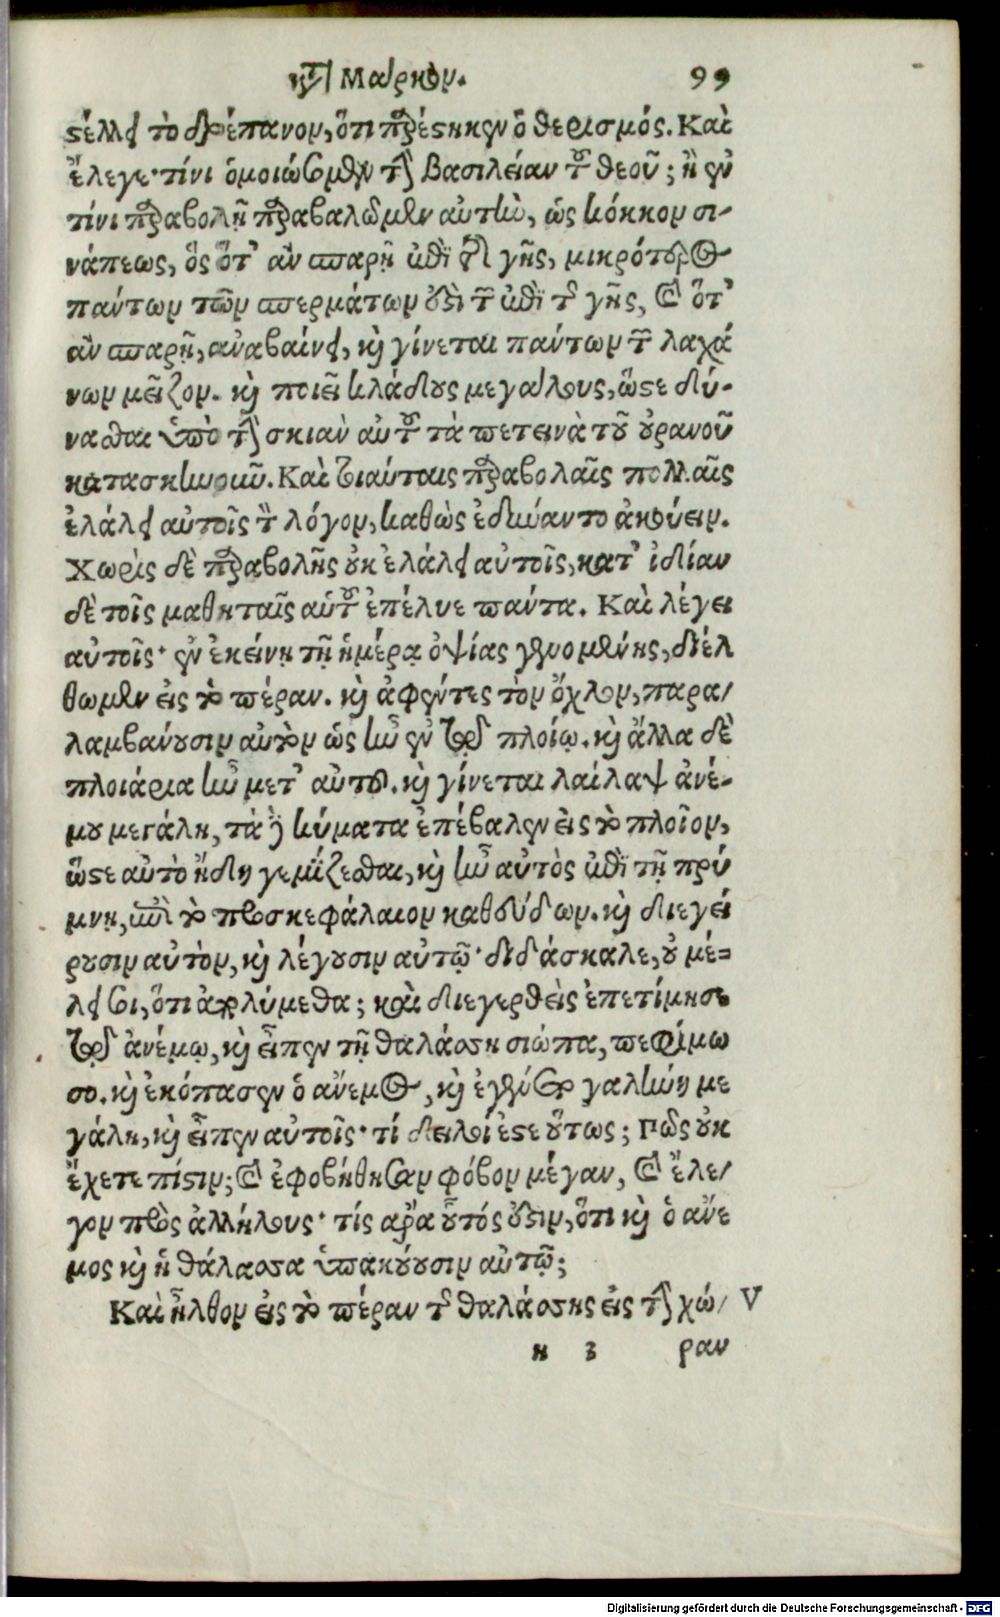 κτ̀ Μάρκον. 99
στέλλει τὸ δρέπανον, ὅτι παρέστηκεν ὁ θερισμός. Καὶ
ἔλεγε· τίνι ὁμοιώσωμεν τὴν βασιλείαν τοῦ θεοῦ; ἢ ἐν
τίνι παραβολῇ παραβαλῶμεν αὐτὴν, ὡς κόκκον σι-
νάπεως, ὃς ὅτ' ἂν σπαρῇ ἐπὶ τῆς γῆς, μικρότερος
πάντων τῶν σπερμάτων ἐστὶ τῶν ἐπὶ τῆς γῆς, καὶ ὅτ'
ἂν σπαρῇ, ἀναβαίνει, καὶ γίνεται πάντων τῶν λαχά
νων μεῖζον. καὶ ποιεῖ κλάδους μεγάλους, ὥστε δύ-
νασθαι ὑπὸ τὴν σκιὰν αὐτοῦ τὰ πετεινὰ τοῦ οὐρανοῦ
κατασκηνοῦν. Καὶ τοιαύταις παραβολαῖς πολλαῖς
ἐλάλει αὐτοῖς τὸν λόγον, καθὼς ἐδύναντο ἀκούειν.
Χωρὶς δὲ παραβολῆς οὐκ ἐλάλει αὐτοῖς, κατ' ἰδίαν
δὲ τοῖς μαθηταῖς αὑτοῦ ἐπέλυε πάντα. Καὶ λέγει
αὐτοῖς· ἐν ἐκείνῃ τῇ ἡμέρᾳ ὀψίας γενομένης, διέλ
θωμεν εἰς τὸ πέραν. καὶ ἀφέντες τὸν ὄχλον, παρα/
λαμβάνουσιν αὐτὸν ὡς ἦν ἐν τῷ πλοίῳ. καὶ ἄλλα δὲ
πλοιάρια ἦν μετ' αὐτοῦ. καὶ γίνεται λαίλαψ ἀνέ-
μου μεγάλη, τὰ δὲ κύματα ἐπέβαλεν εἰς τὸ πλοῖον,
ὥστε αὐτὸ ἤδη γεμίζεσθαι, καὶ ἦν αὐτὸς ἐπὶ τῇ πρύ
μνῃ, ἐπὶ τὸ προσκεφάλαιον καθεύδων. καὶ διεγεί
ρουσιν αὐτὸν, καὶ λέγουσιν αὐτῷ· διδάσκαλε, οὐ μέ=
λει σοι, ὅτι ἀπολλύμεθα; καὶ διεγερθεὶς ἐπετίμησε
τῷ ἀνέμῳ, καὶ εἶπεν τῇ θαλάσσῃ σιώπα, πεφίμω
σο. καὶ ἐκόπασεν ὁ ἄνεμος, καὶ ἐγένετο γαλήνη με
γάλη, καὶ εἶπεν αὐτοῖς· τί δειλοί ἐστε οὕτως; πῶς οὐκ
ἔχετε πίστιν; καὶ ἐφοβήθησαν φόβον μέγαν, καὶ ἔλε/
γον πρὸς ἀλλήλους· τίς ἄρα οὗτός ἐστιν, ὅτι καὶ ὁ ἄνε
μος καὶ ἡ θάλασσα ὑπακούουσιν αὐτῷ;
Καὶ ἦλθον εἰς τὸ πέραν τῆς θαλάσσης εἰς τὴν χώ/ V
n 3 ραν
Digitalisierung gefördert durch die Deutsche Forschungsgemeinschaft - DFG